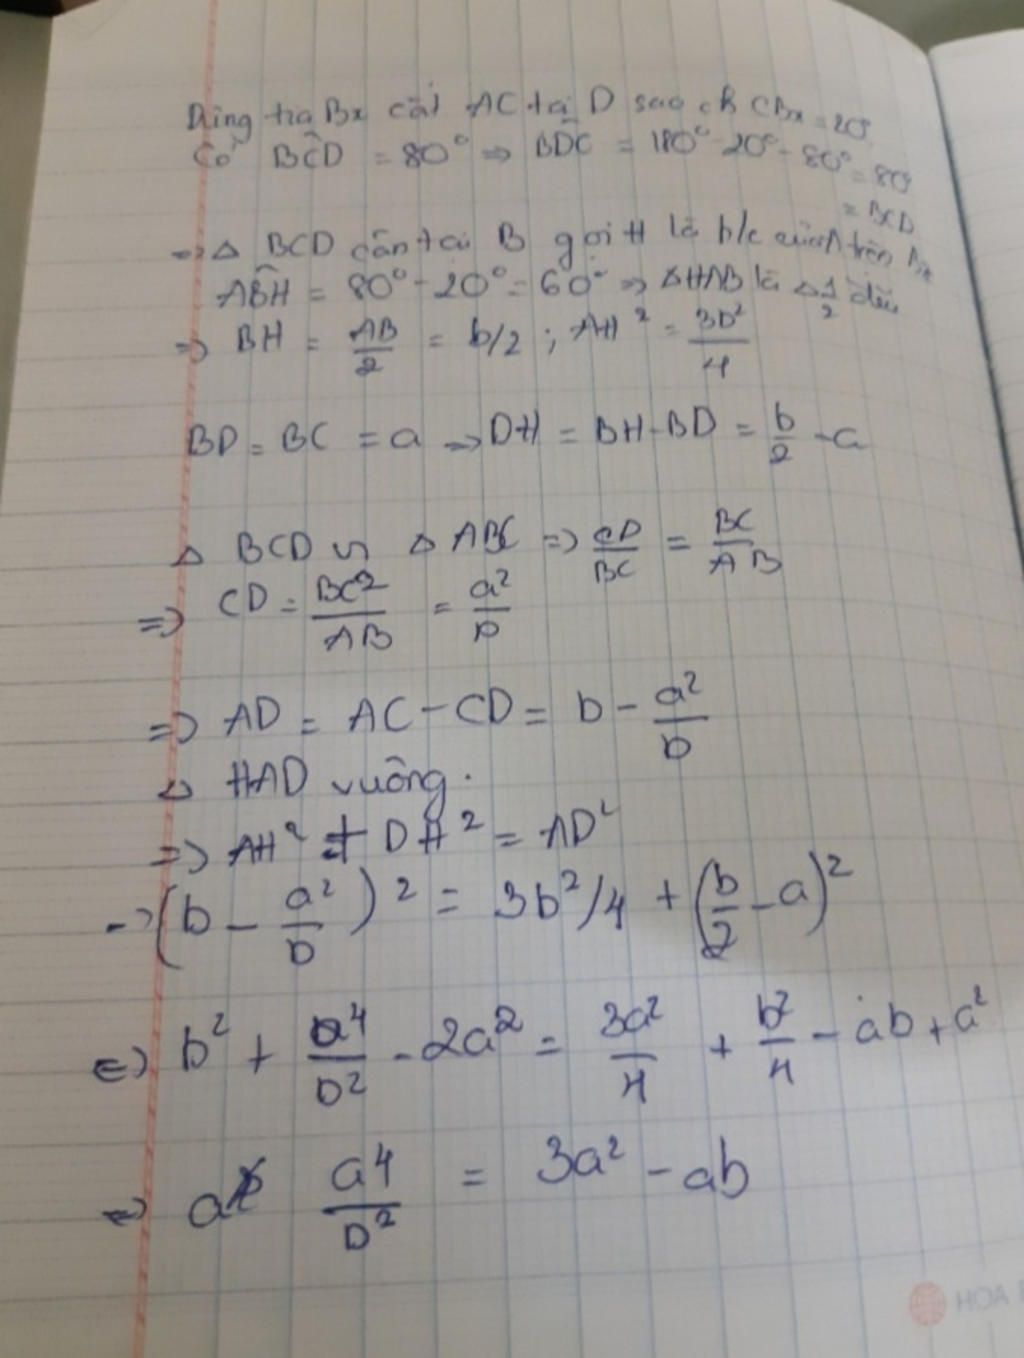 Dùng tia Bx cắt AC tại D sao ch CBx = 20°
Có BĈD = 80° => BD̂C = 180° - 20° - 80° = 80°
= BCD
=> Δ BCD cân tại B gọi H là h/c của A trên Bx
AB̂H = 80° - 20° = 60° => ΔHAB là Δ 1/2 đều
=> BH = AB/2 = b/2 ; AH² = 3b²/4
BD = BC = a => DH = BH - BD = b/2 - a
Δ BCD ∽ Δ ABC => CD/BC = BC/AB
=> CD = BC²/AB = a²/b
=> AD = AC - CD = b - a²/b
Δ HAD vuông.
=> AH² + DH² = AD²
-> (b - a²/b)² = 3b²/4 + (b/2 - a)²
<=> b² + a⁴/b² - 2a² = 3a²/4 + b²/4 - ab + a²
<=> a a⁴/b² = 3a² - ab
HOA